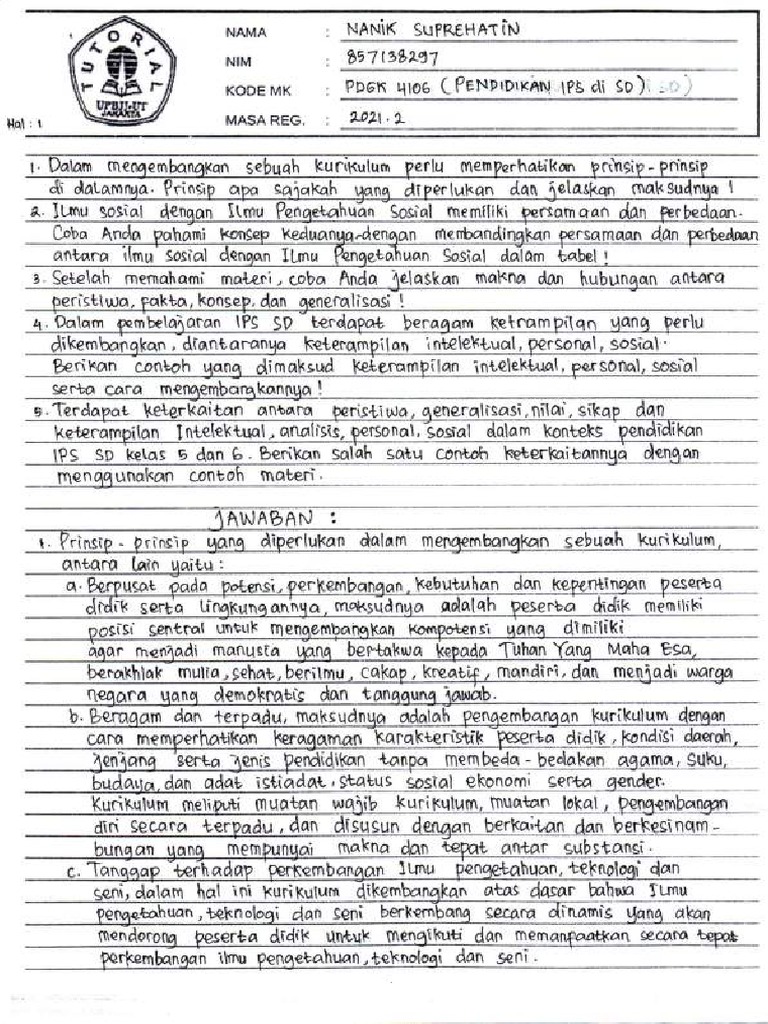 TUTORIAL
UPBJJ-UT
JAKARTA
NAMA : NANIK SUPREHATIN
NIM : 857138297
KODE MK : PDGK 4106 (PENDIDIKAN IPS di SD) SD)
MASA REG. : 2021.2
Hal : 1
1. Dalam mengembangkan sebuah kurikulum perlu memperhatikan prinsip-prinsip
di dalamnya. Prinsip apa sajakah yang diperlukan dan jelaskan maksudnya !
2. Ilmu sosial dengan Ilmu Pengetahuan Sosial memiliki persamaan dan perbedaan.
Coba Anda pahami konsep keduanya dengan membandingkan persamaan dan perbedaan
antara ilmu sosial dengan Ilmu Pengetahuan Sosial dalam tabel !
3. Setelah memahami materi, coba Anda jelaskan makna dan hubungan antara
peristiwa, fakta, konsep, dan generalisasi !
4. Dalam pembelajaran IPS SD terdapat beragam ketrampilan yang perlu
dikembangkan, diantaranya keterampilan intelektual, personal, sosial.
Berikan contoh yang dimaksud keterampilan intelektual, personal, sosial
serta cara mengembangkannya !
5. Terdapat keterkaitan antara peristiwa, generalisasi, nilai, sikap dan
keterampilan Intelektual, analisis, personal, sosial dalam konteks pendidikan
IPS SD kelas 5 dan 6. Berikan salah satu contoh keterkaitannya dengan
menggunakan contoh materi.
JAWABAN :
1. Prinsip - prinsip yang diperlukan dalam mengembangkan sebuah kurikulum,
antara lain yaitu :
a. Berpusat pada potensi, perkembangan, kebutuhan dan kepentingan peserta
didik serta lingkungannya, maksudnya adalah peserta didik memiliki
posisi sentral untuk mengembangkan kompetensi yang dimiliki
agar menjadi manusia yang bertakwa kepada Tuhan Yang Maha Esa,
berakhlak mulia, sehat, berilmu, cakap, kreatif, mandiri, dan menjadi warga
negara yang demokratis dan tanggung jawab.
b. Beragam dan terpadu, maksudnya adalah pengembangan kurikulum dengan
cara memperhatikan keragaman karakteristik peserta didik, kondisi daerah,
jenjang serta jenis pendidikan tanpa membeda-bedakan agama, suku,
budaya, dan adat istiadat, status sosial ekonomi serta gender.
Kurikulum meliputi muatan wajib kurikulum, muatan lokal, pengembangan
diri secara terpadu, dan disusun dengan berkaitan dan berkesinam-
bungan yang mempunyai makna dan tepat antar substansi.
c. Tanggap terhadap perkembangan Ilmu pengetahuan, teknologi dan
seni, dalam hal ini kurikulum dikembangkan atas dasar bahwa Ilmu
pengetahuan, teknologi dan seni berkembang secara dinamis yang akan
mendorong peserta didik untuk mengikuti dan memanfaatkan secara tepat
perkembangan ilmu pengetahuan, teknologi dan seni.